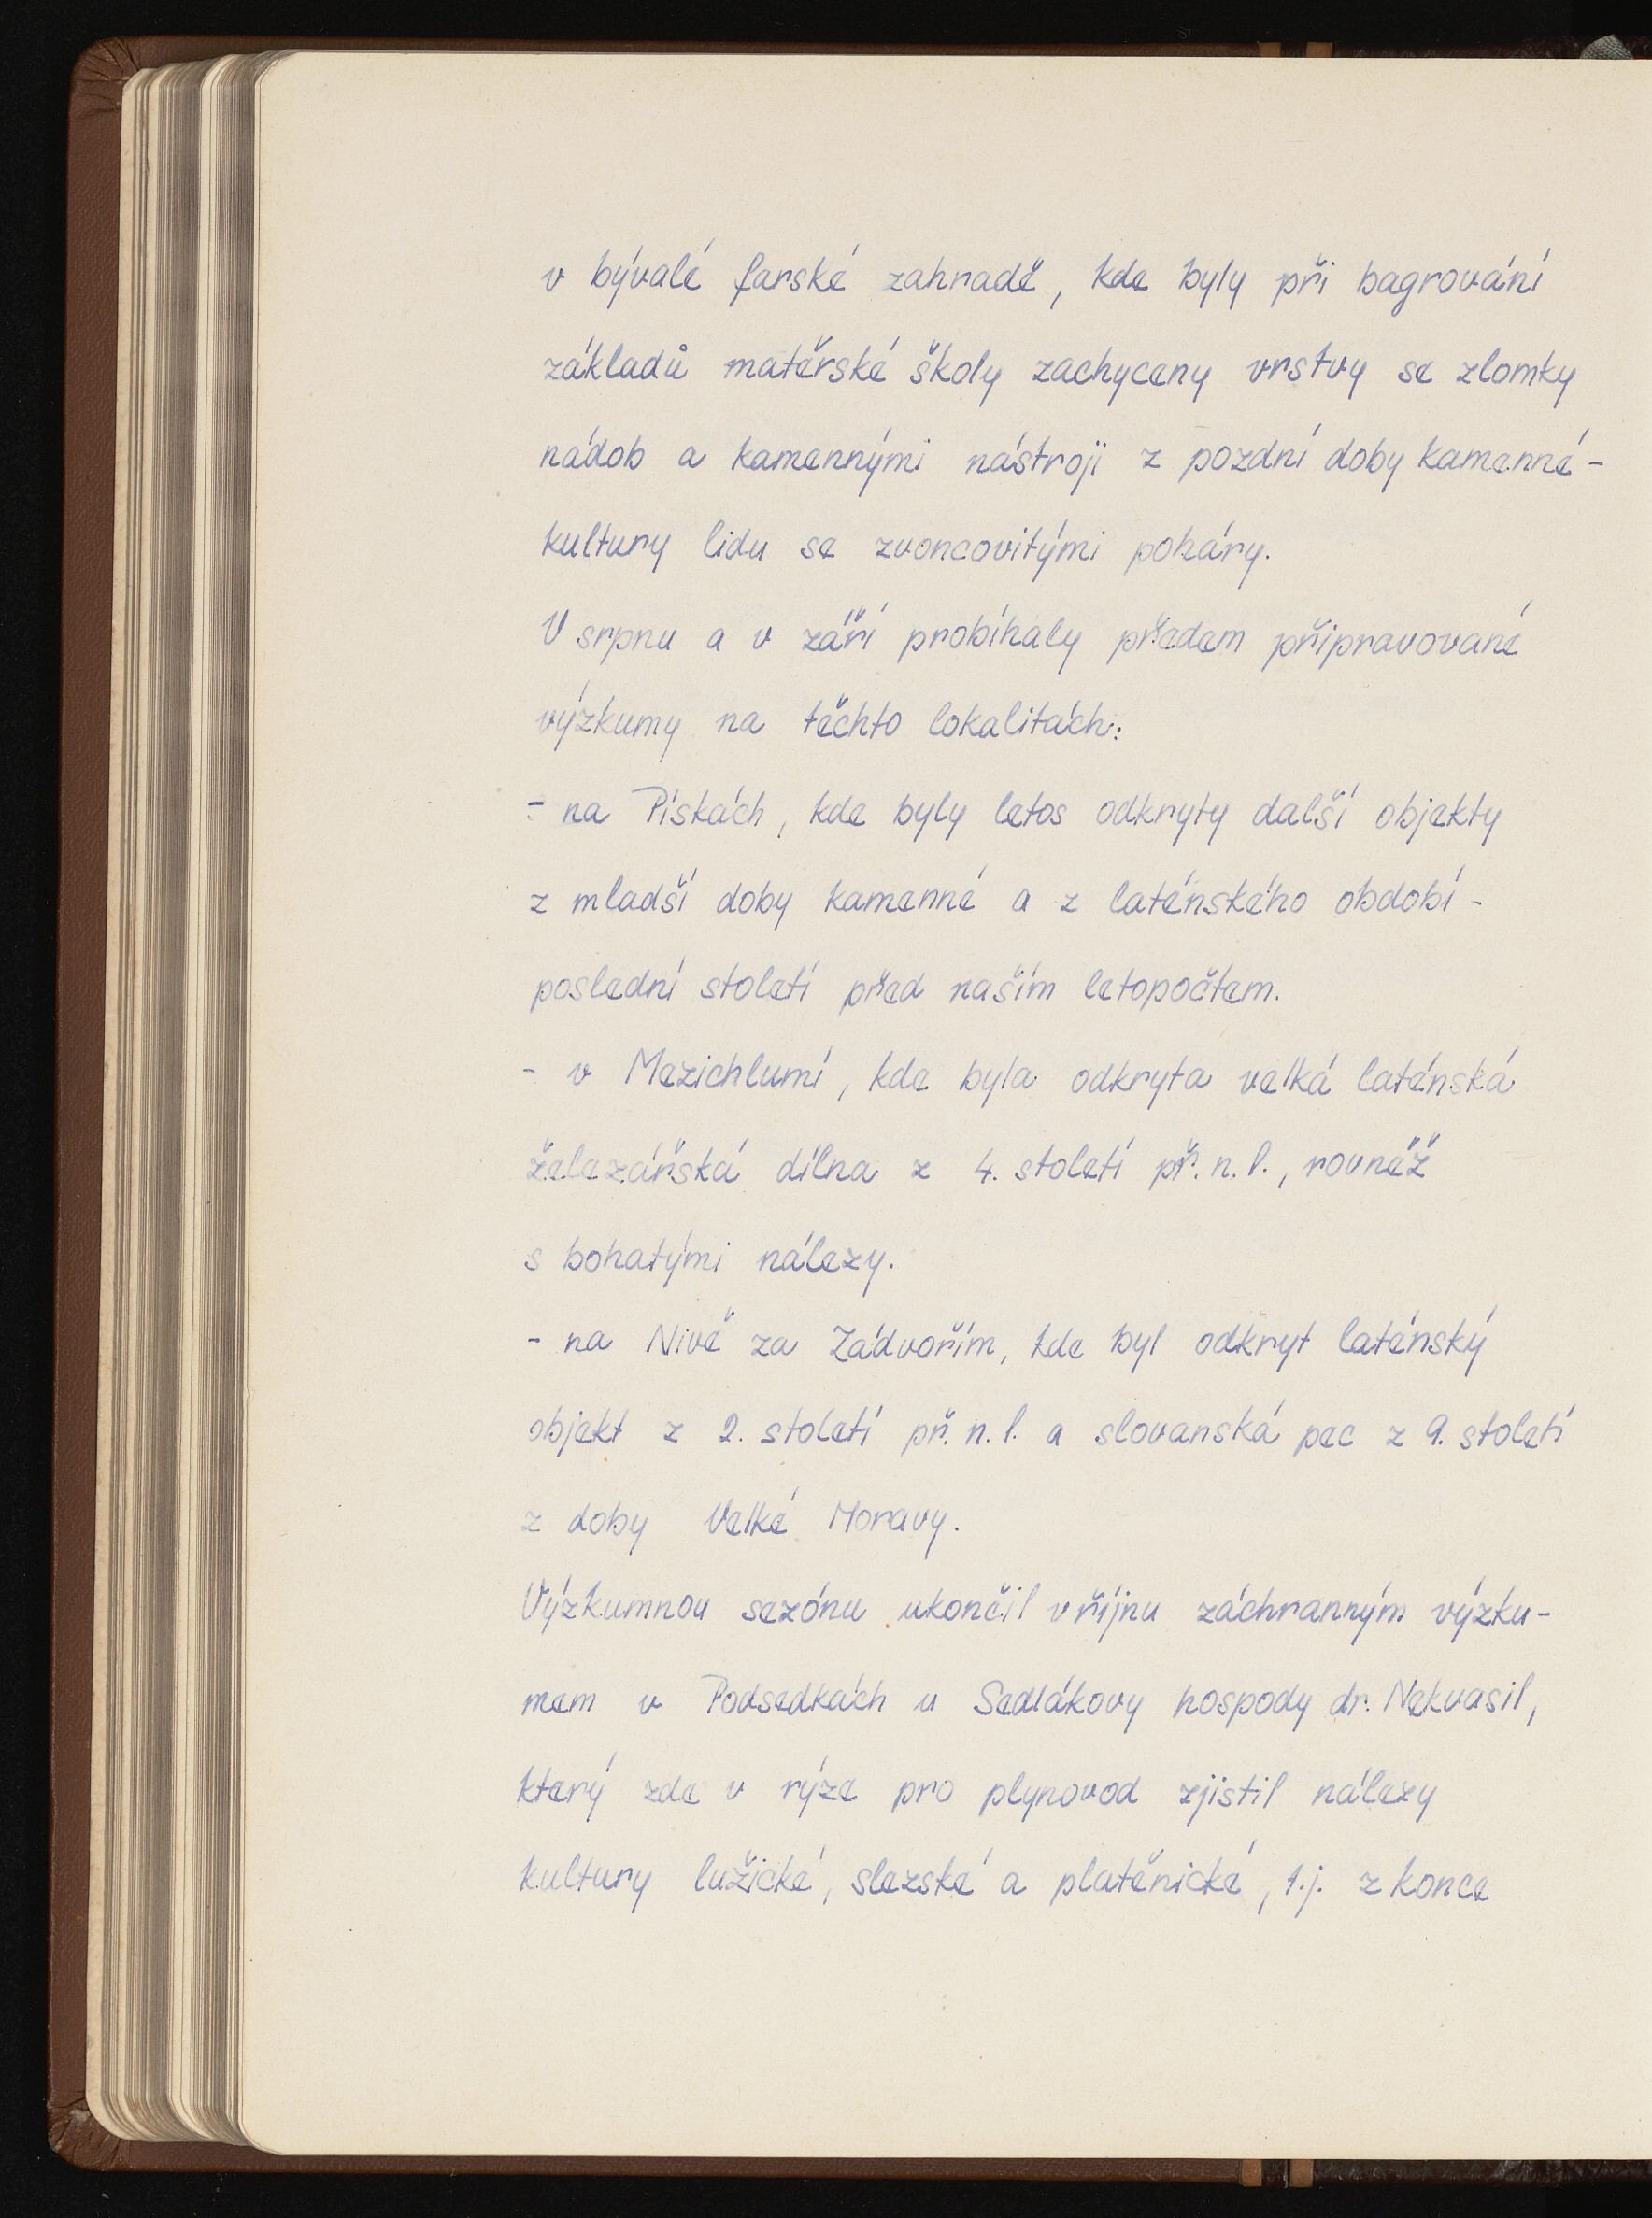 v bývalé farské zahradě, kde byly při bagrování
základů matěřské školy zachyceny vrstvy se zlomky
nádob a kamennými nástroji z pozdní doby kamenné-
kultury lidu se zvoncovitými poháry.
V srpnu a v září probíhaly předem připravované
výzkumy na těchto lokalitách:
- na Pískách, kde byly letos odkryty další objekty
z mladší doby kamenné a z laténského období -
poslední století před naším letopočtem.
- v Mezichlumí, kde byla odkryta velká laténská
železářská dílna z 4. století př. n. l., rovněž
s bohatými nálezy.
- na Nivě za Zádvořím, kde byl odkryt laténský
objekt z 2. století př. n. l. a slovanská pec z 9. století
z doby Velké Moravy.
Výzkumnou sezónu ukončil v říjnu záchranným výzku-
mem v Podsedkách u Sedlákovy hospody dr. Nekvasil,
který zde v rýze pro plynovod zjistil nálezy
kultury lužické, slezské a platěnické, t.j. z konce